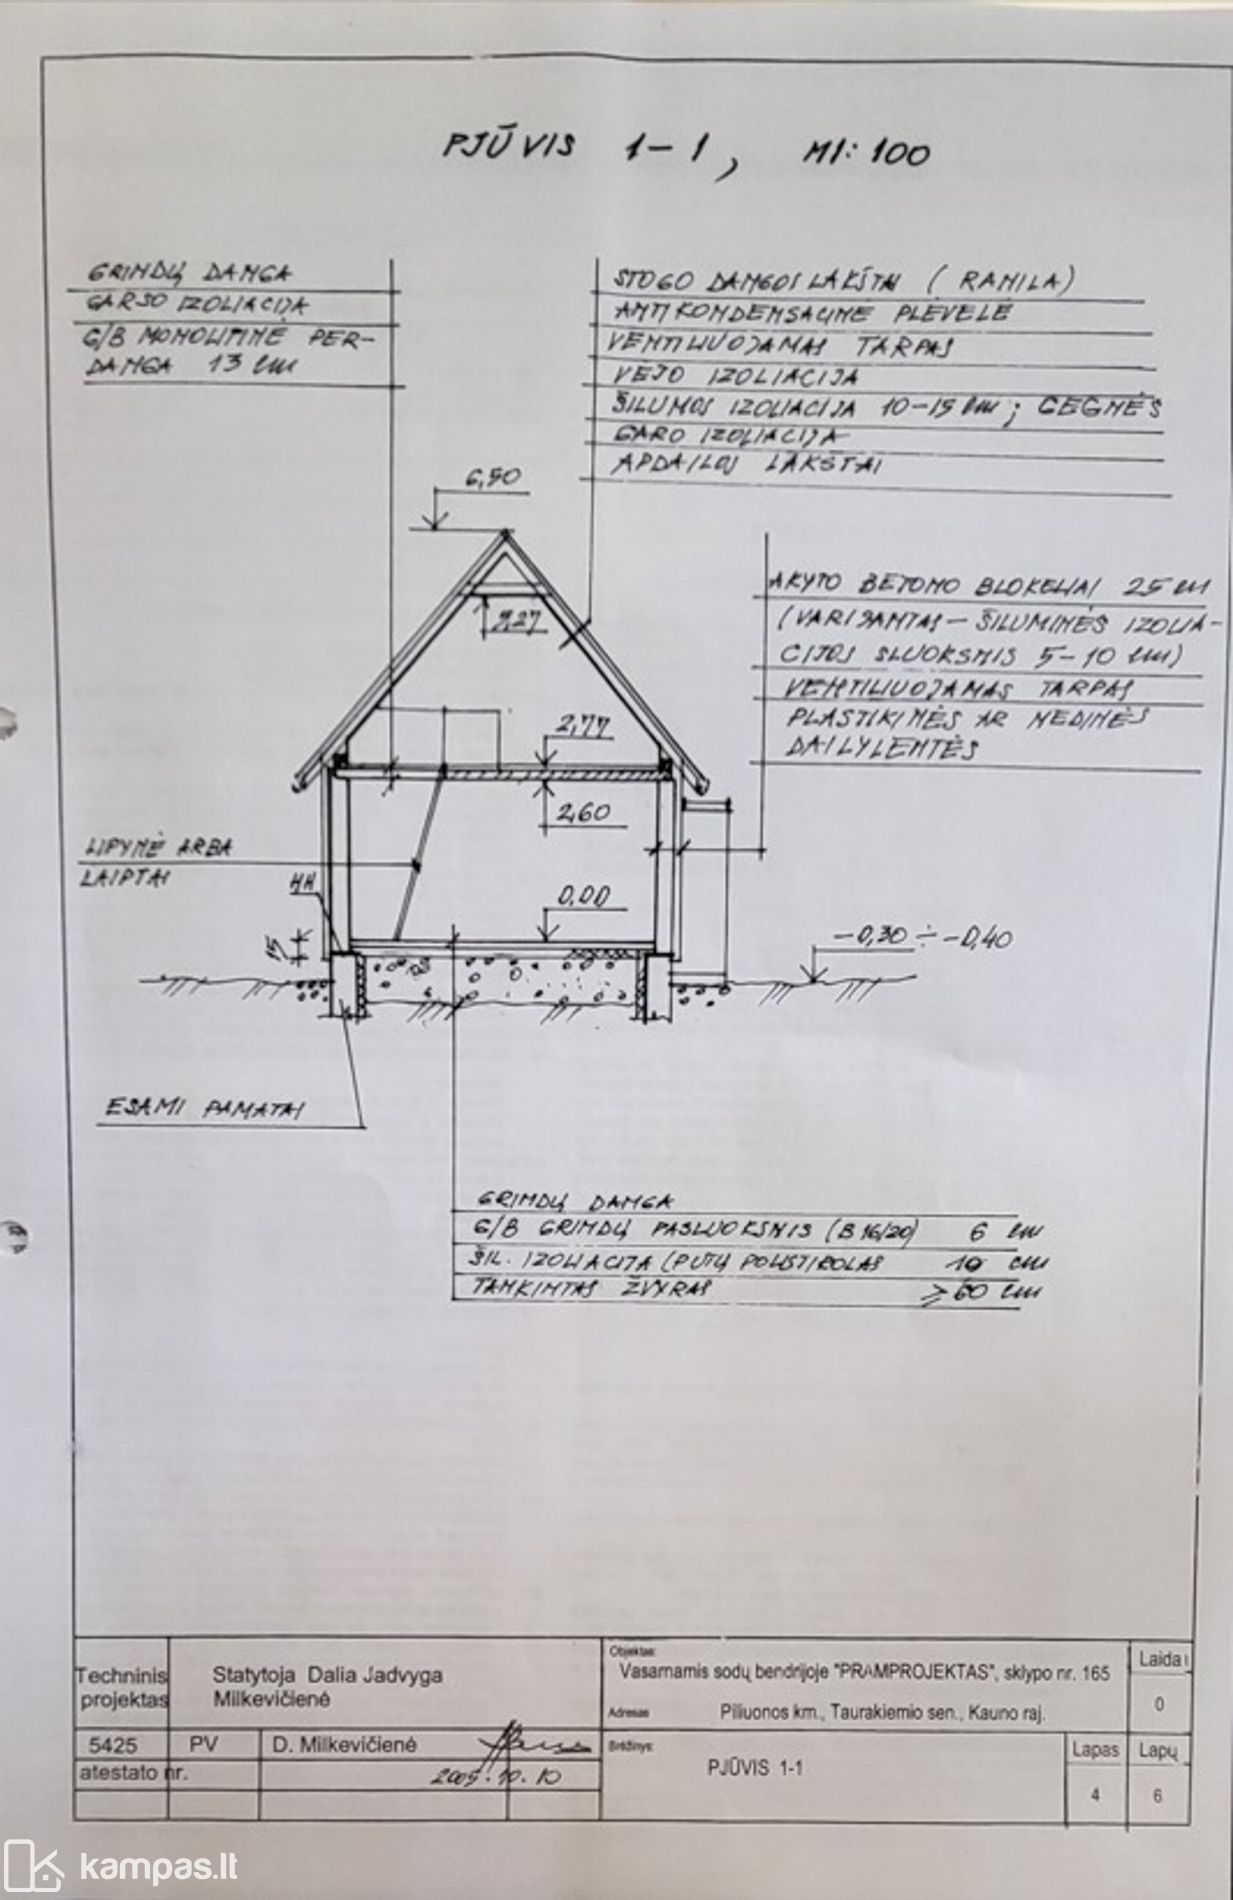 PJŪVIS 1-1, M1:100
GRINDŲ DANGA
GARSO IZOLIACIJA
G/B MONOLITINĖ PER-
DANGA 13 cm
STOGO DANGOS LAKŠTAI (RANILA)
ANTIKONDENSACINĖ PLĖVELĖ
VENTILIUOJAMAS TARPAS
VĖJO IZOLIACIJA
ŠILUMOS IZOLIACIJA 10-15 cm; GEGNĖS
GARO IZOLIACIJA
APDAILOS LAKŠTAI
6,50
AKYTO BETONO BLOKELIAI 25 cm
(VARIJANTAS - ŠILUMINĖS IZOLIA-
CIJOS SLUOKSNIS 5-10 cm)
VENTILIUOJAMAS TARPAS
PLASTIKINĖS AR MEDINĖS
DAILYLENTĖS
2,77
2,60
LIPYNĖ ARBA
LAIPTAI
HH
0,00
15
-0,30 ÷ -0,40
ESAMI PAMATAI
GRINDŲ DANGA
G/B GRINDŲ PASLUOKSNIS (B 16/20) 6 cm
ŠIL. IZOLIACIJA (PUTŲ POLISTIROLAS 10 cm
TANKINTAS ŽVYRAS ≥60 cm
Techninis
projektas
Statytoja Dalia Jadvyga
Milkevičienė
Objektas:
Vasarnamis sodų bendrijoje "PRAMPROJEKTAS", sklypo nr. 165
Adresas Piliuonos km., Taurakiemio sen., Kauno raj.
Laida
0
5425 PV D. Milkevičienė
atestato nr. 2005.10.10
Brėžinys:
PJŪVIS 1-1
Lapas Lapų
4 6
kampas.lt